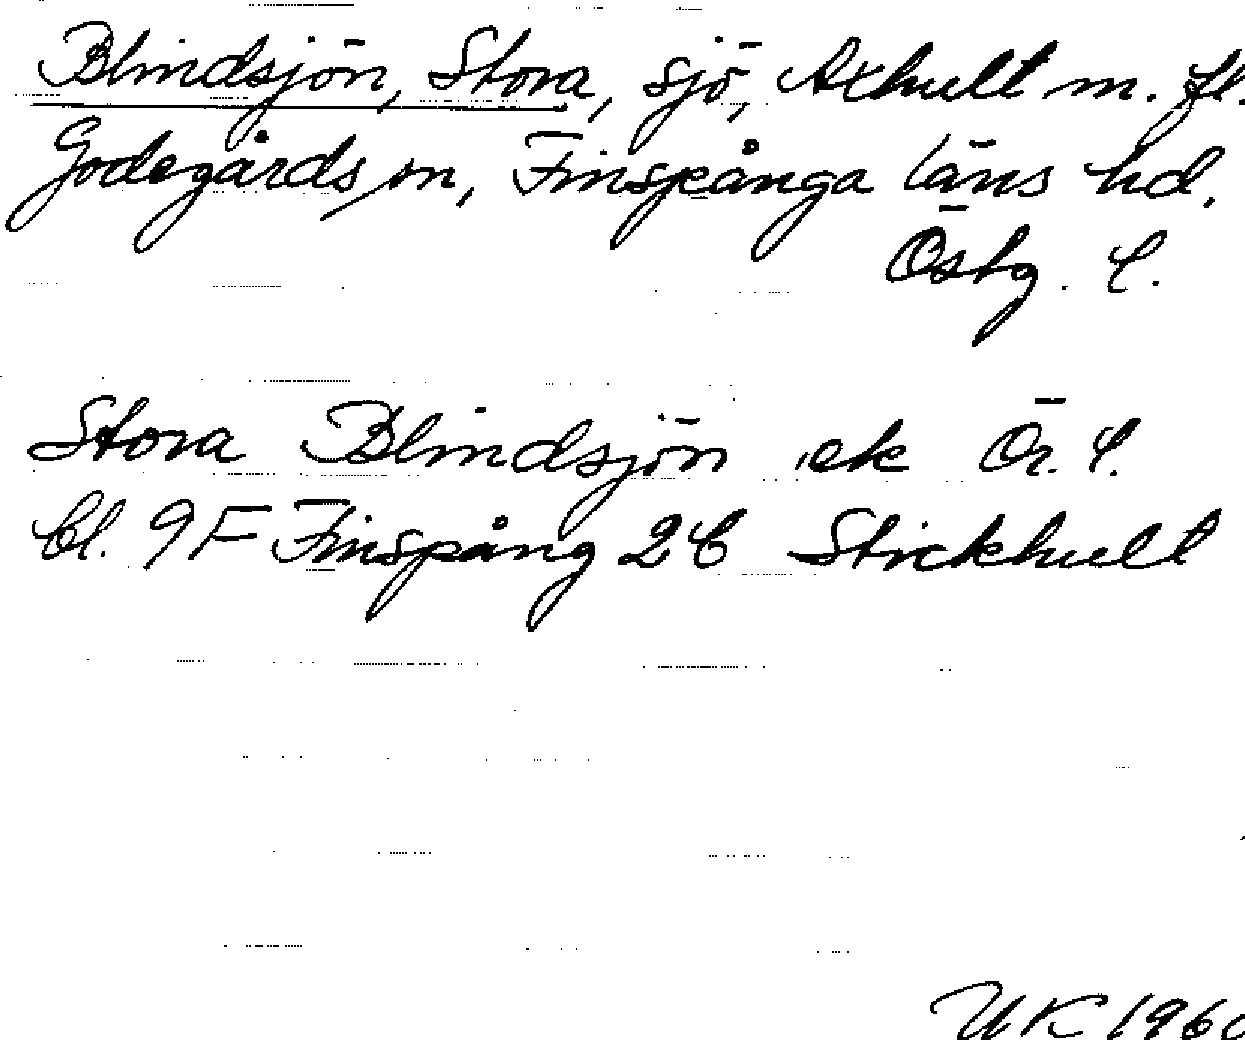 Blindsjön, Stora, sjö, Axhult m. fl.
Godegårds sn, Finspånga läns hd.
Östg. l.
Stora Blindsjön ek Ör. l.
bl. 9F Finspång 2b Stickhult
UK 1960